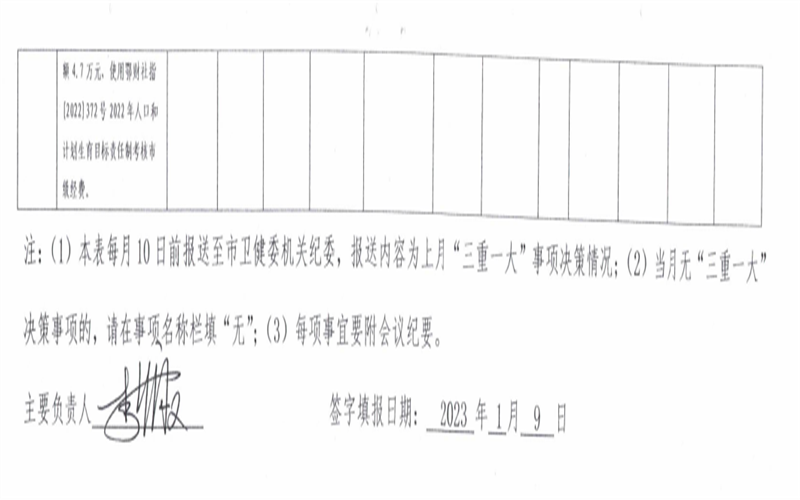 额4.7万元、使用鄂财社指
[2022]372号2022年人口和
计划生育目标责任制考核市
级经费。
注：(1)本表每月10日前报送至市卫健委机关纪委，报送内容为上月“三重一大”事项决策情况；(2)当月无“三重一大”
决策事项的，请在事项名称栏填“无”；(3)每项事宜要附会议纪要。
主要负责人 签字填报日期： 2023 年 1 月 9 日